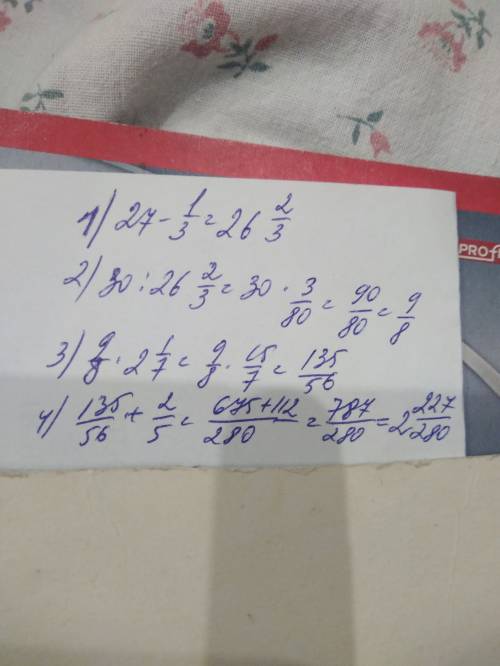 1) 27 - 1/3 = 26 2/3
2) 30 : 26 2/3 = 30 · 3/80 = 90/80 = 9/8
3) 9/8 · 2 1/7 = 9/8 · 15/7 = 135/56
4) 135/56 + 2/5 = 675+112/280 = 787/280 = 2 227/280
PROfi